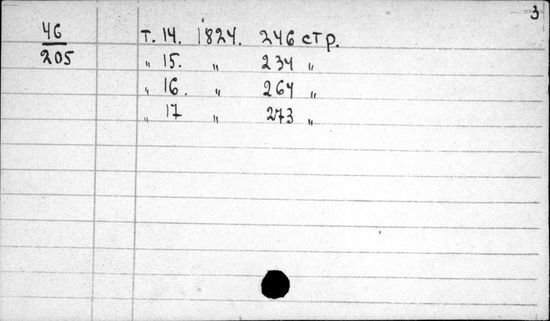 3
46
205
т. 14. 1824. 246 стр.
„ 15. „ 234 „
„ 16. „ 264 „
„ 17 „ 273 „